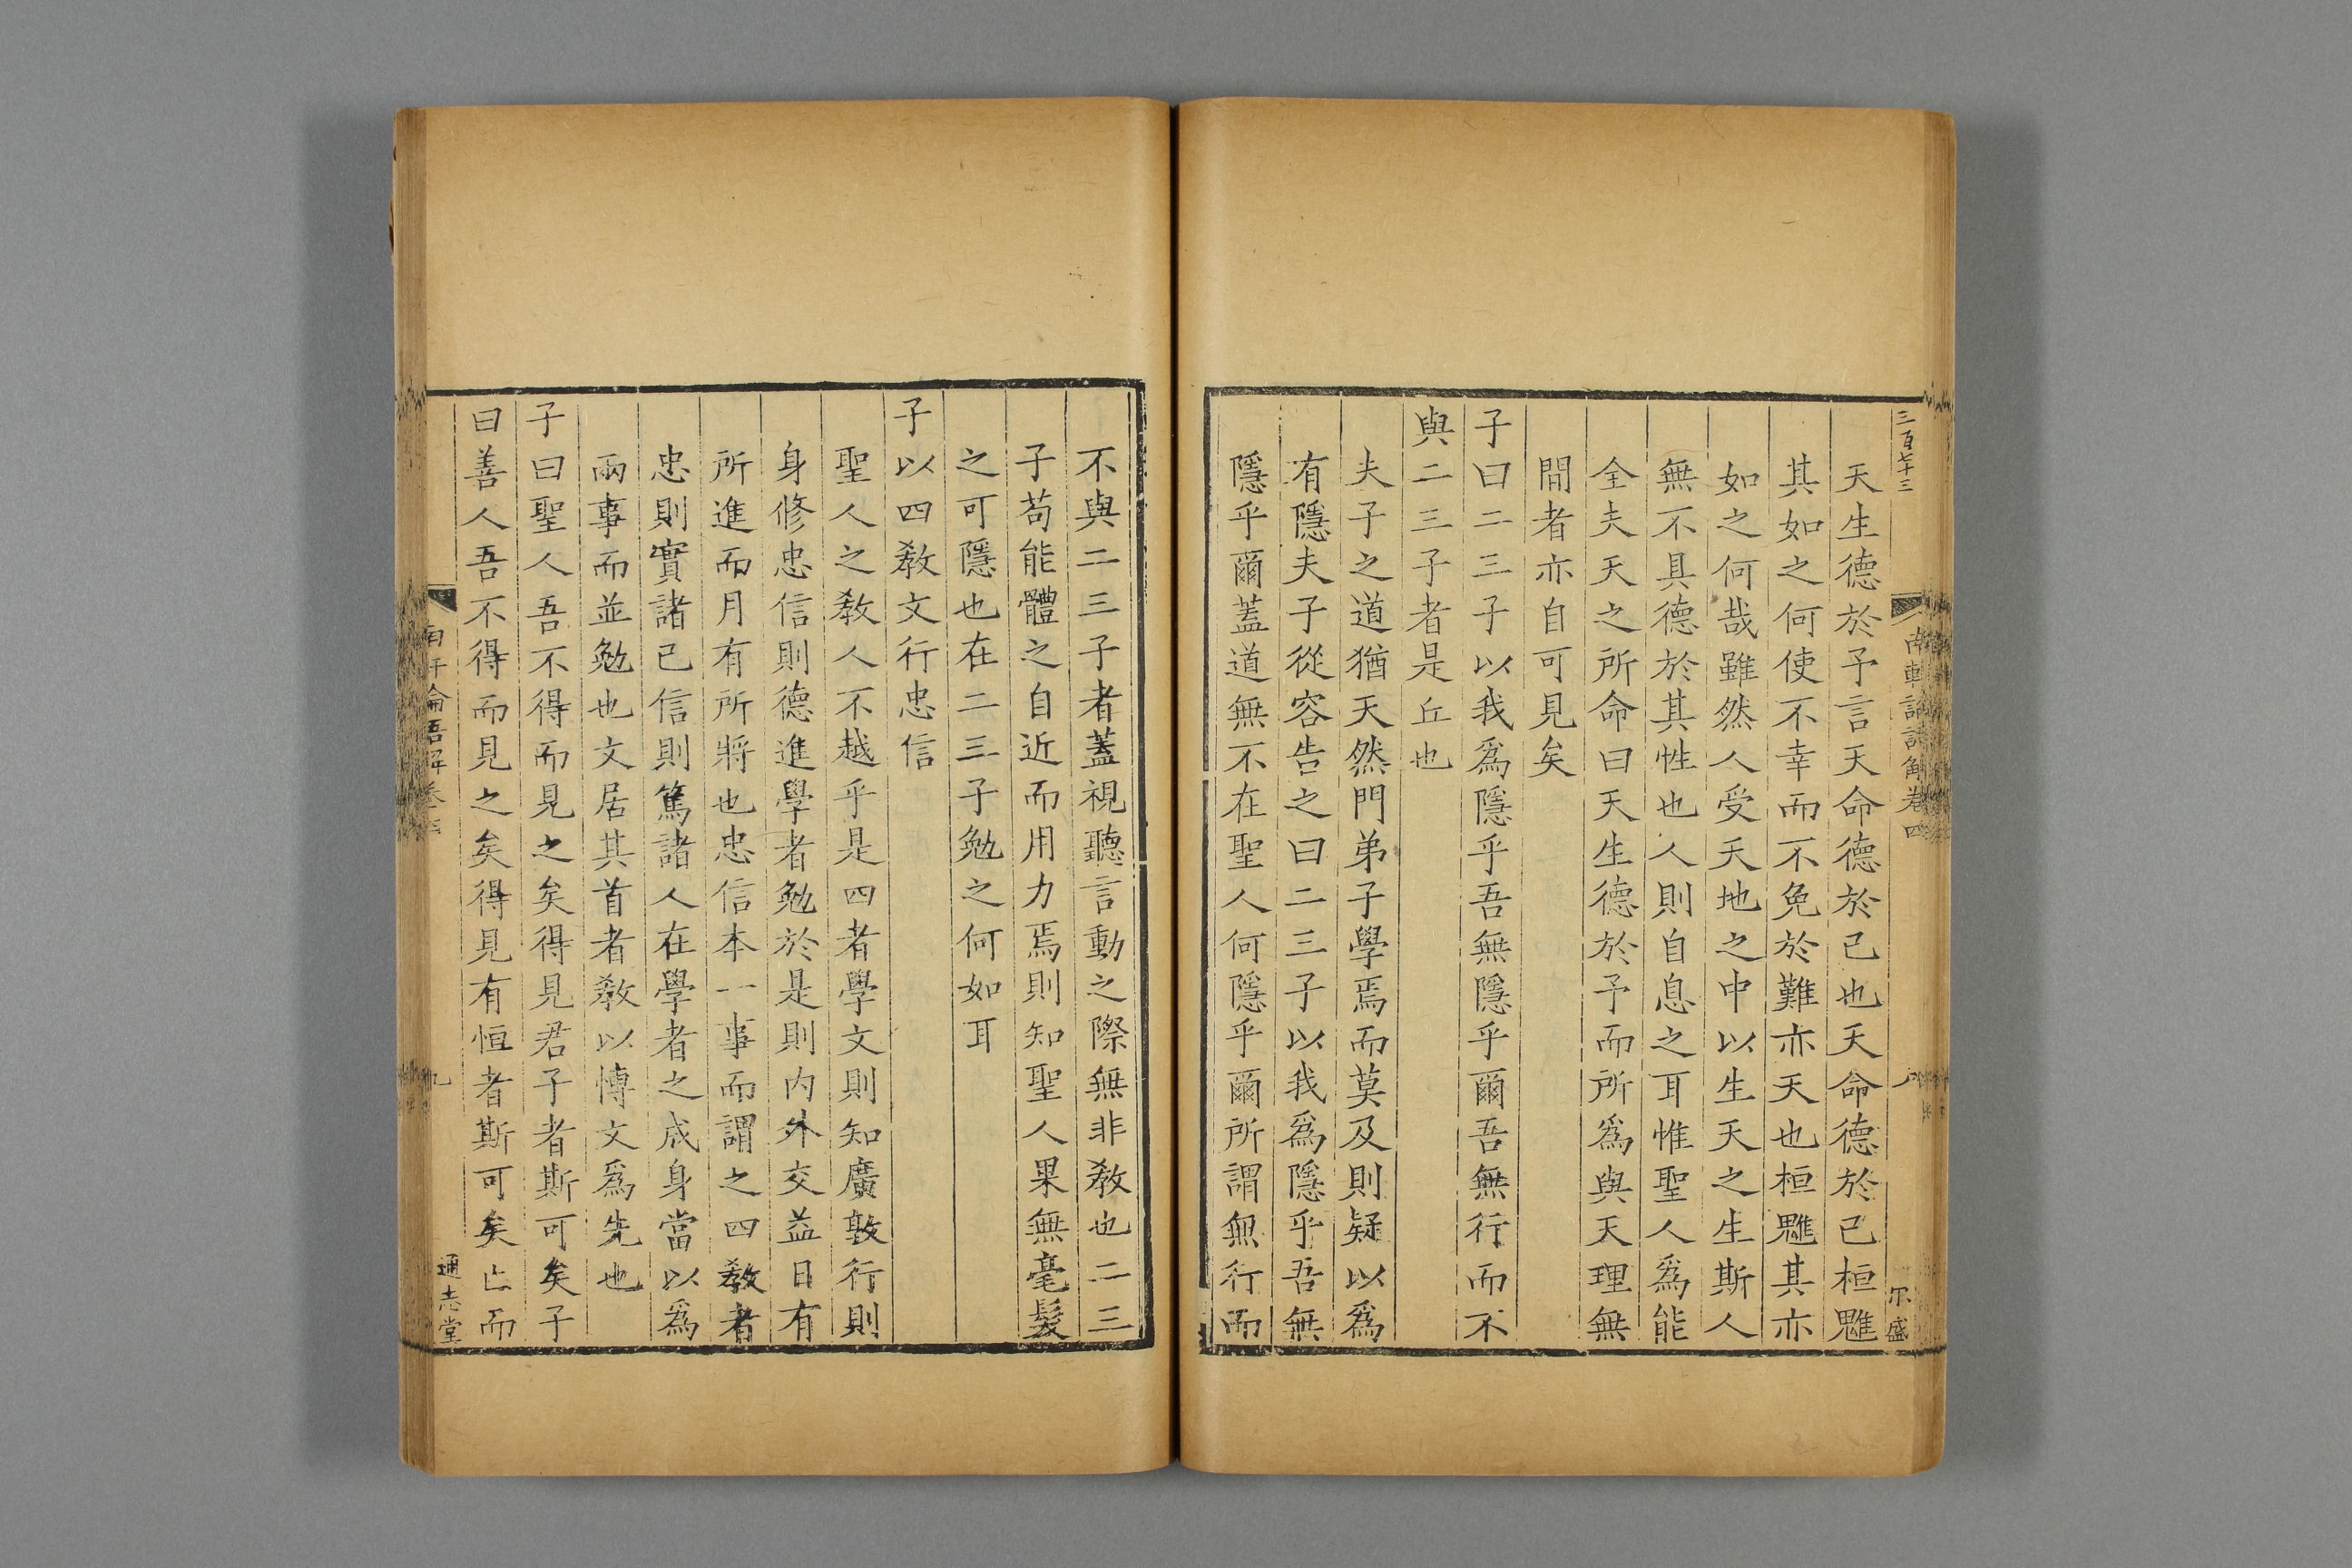 三百七十三
南軒論語解卷四
八
尔盛
天生德於予言天命德於己也天命德於己桓魋
其如之何使不幸而不免於難亦天也桓魋其亦
如之何哉雖然人受天地之中以生天之生斯人
無不具德於其性也人則自息之耳惟聖人爲能
全夫天之所命曰天生德於予而所爲與天理無
間者亦自可見矣
子曰二三子以我爲隱乎吾無隱乎爾吾無行而不
與二三子者是丘也
夫子之道猶天然門弟子學焉而莫及則疑以爲
有隱夫子從容告之曰二三子以我爲隱乎吾無
隱乎爾蓋道無不在聖人何隱乎爾所謂無行而
不與二三子者蓋視聽言動之際無非教也二三
子苟能體之自近而用力焉則知聖人果無毫髮
之可隱也在二三子勉之何如耳
子以四教文行忠信
聖人之教人不越乎是四者學文則知廣敦行則
身修忠信則德進學者勉於是則内外交益日有
所進而月有所將也忠信本一事而謂之四教者
忠則實諸己信則篤諸人在學者之成身當以爲
兩事而並勉也文居其首者教以博文爲先也
子曰聖人吾不得而見之矣得見君子者斯可矣子
曰善人吾不得而見之矣得見有恒者斯可矣亡而
南軒論語解卷四
九
通志堂